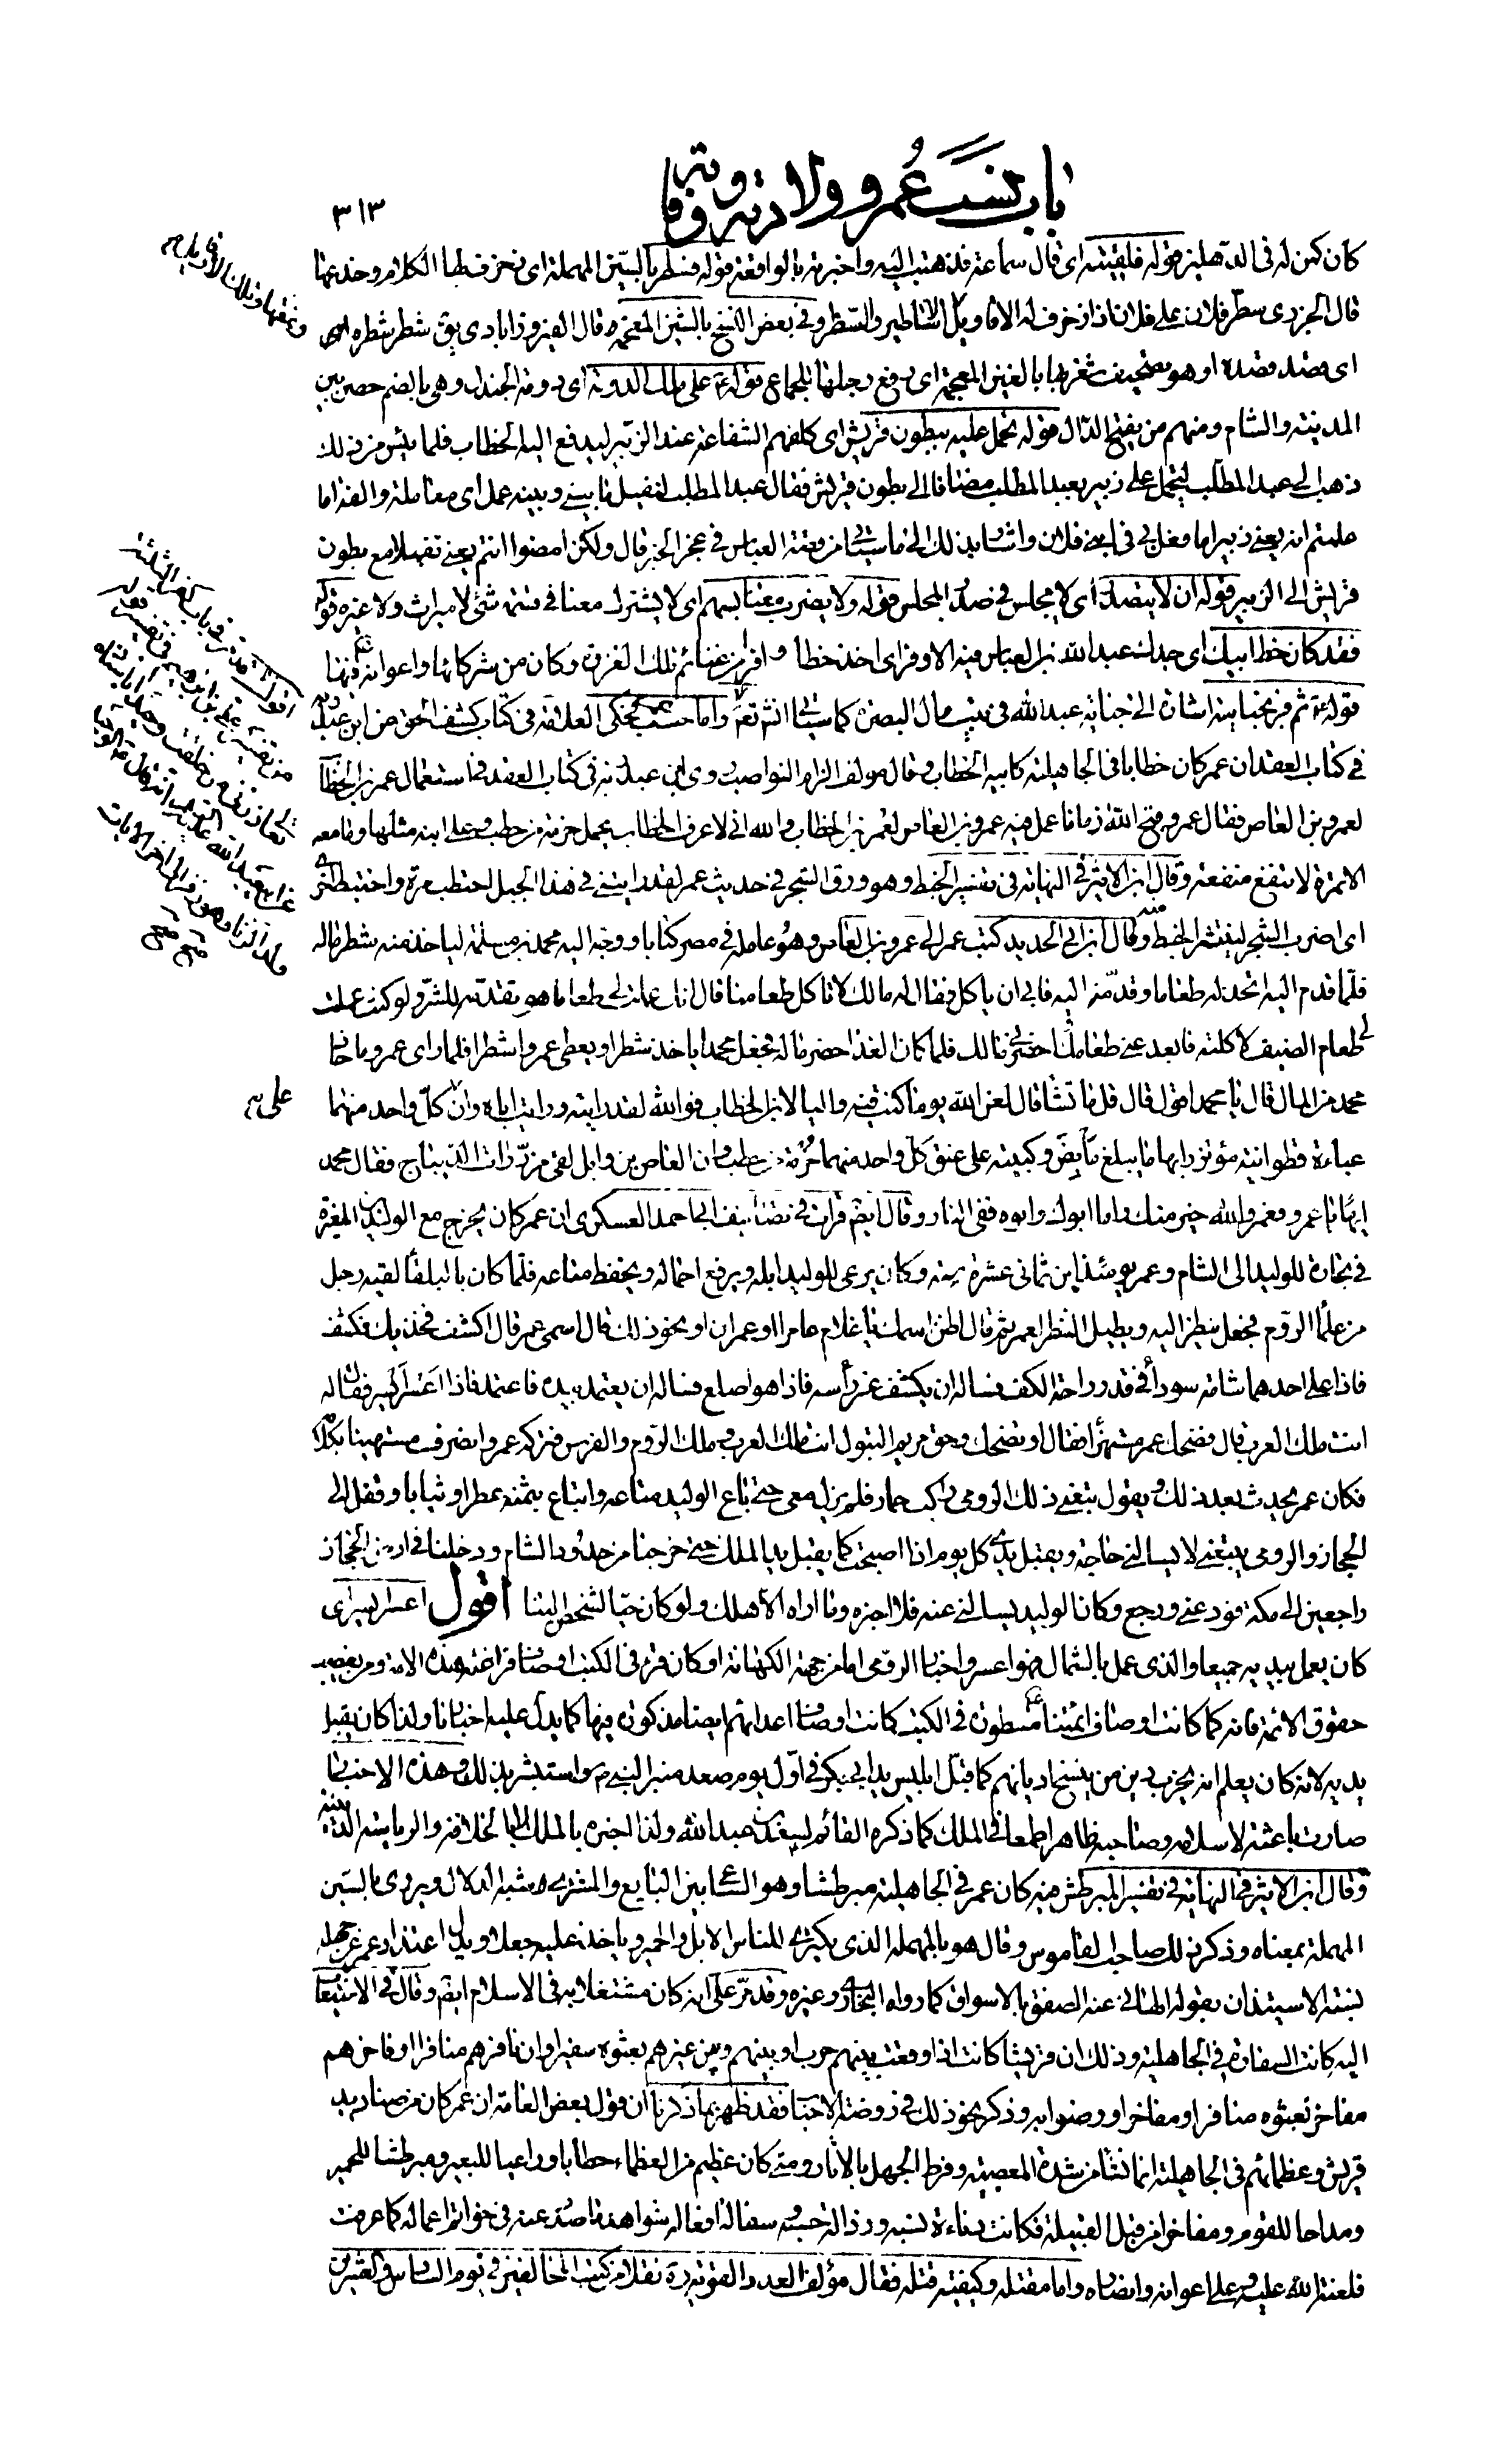 باب نسب عمر و ولادته و وفاته
٣١٣
كان كمن له في الدهليز قوله فلقيته اى قال سماعة فذهبت اليه واخبرته بالواقعة قوله فسطر بالسين المهملة اى زخرف لها الكلام وخدعها
قال الجزرى سطر فلان على فلان اذا زخرف له الاقاويل الاساطير والسطر وفي بعض النسخ بالشين المعجمة قال الفيروزابادى يق شطر شطره
اى قصد قصده او هو تصحيف شغر بها بالغين المعجمة اى رفع رجلها للجماع قوله ع على ملك الدومة اى دومة الجندل وهي بالضم حصن بين
المدينة والشام ومنهم من يفتح الدال قوله تحمل عليه ببطون قريش اى كلفهم الشفاعة عند الزبير ليدفع اليه الخطاب فلما يئس من ذلك
ذهب الى عبد المطلب ليتحمل على زبير بعبد المطلب مضافا الى بطون قريش فقال عبد المطلب لنفيل ما بيني وبينه عمل اى معاملة والفة اما
علمتم انه يعني زبير اما فعل بي في ابني فلان واشار بذلك الى ما سيأتي من قصة العباس في عجز الخبر قال ولكن امضوا انتم يعني نفيلا مع بطون
قريش الى الزبير قوله ان لا يتصدر اى لا يجلس في صدر المجلس قوله ولا يضرب معنا بسهم اى لا يشترك معنا في قسمة شئ لا ميراث ولا غيره قوله
فقد كان حظ ابيك اى جدك عبد الله بن العباس فيه الاوفر اى اخذ حظا وافرا من غنائم تلك الغزوة وكان من شركائها واعوانه ع فيها
قوله ع ثم فر بخيانته اشارة الى خيانة عبد الله في بيت مال البصرة كما سيأتي انش تعالى واما حسب عمر فحكى العلامة في كتاب كشف الحق عن ابن عبد ربه
في كتاب العقد ان عمر كان حطابا في الجاهلية كابيه الخطاب وقال مؤلف الزام النواصب روى ابن عبد ربه في كتاب العقد في استعمال عمر بن الخطاب
لعمرو بن العاص فقال عمرو قبح الله زمانا عمل فيه عمرو بن العاص لعمر بن الخطاب والله اني لاعرف الخطاب يحمل حزمة من حطب وعلى ابنه مثلها وما معه
الا تمرة لا تنفع منفعة وقال ابن الاثير في النهاية في تفسير الخبط وهو ورق الشجر في حديث عمر لقد رايتني في هذا الجبل احتطب مرة واختبط اخرى
اى اضرب الشجر لينتثر الخبط منه وقال ابن ابي الحديد كتب عمر الى عمرو بن العاص وهو عامله في مصر كتابا ووجه اليه محمد بن مسلمة لياخذ منه شطر ماله
فلما قدم اليه اتخذ له طعاما وقدمه اليه فابى ان ياكل فقال له مالك لا تاكل طعامنا قال انك عملت لي طعاما هو تقدمة للشر ولو كنت عملت
لي طعام الضيف لاكلته فابعد عني طعامك واحضر لي مالك فلما كان الغد احضر ماله فجعل محمد ياخذ شطرا ويعطى عمروا شطرا فلما راى عمرو ما حاز
محمد من المال قال يا محمد اقول قال قل ما تشا قال لعن الله يوما كنت فيه واليا لابن الخطاب فوالله لقد رايته ورايت اباه وان كل واحد منهما
على يه
عباءة قطوانية مؤتزرا بها ما يبلغ مأبض ركبتيه على عنق كل واحد منهما حزمة من حطب وان العاص بن وايل لفي مزررات الديباج فقال محمد
ايها يا عمرو فعمر والله خير منك واما ابوك وابوه ففي النار وقال ايضم قرات في تصانيف ابي احمد العسكرى ان عمر كان يخرج مع الوليد بن المغيرة
في تجارة للوليد الى الشام وعمر يومئذ ابن ثماني عشرة سنة وكان يرعى للوليد ابله ويرفع احماله ويحفظ متاعه فلما كان بالبلقا لقيه رجل
من علما الروم فجعل ينظر اليه ويطيل النظر لعمر ثم قال اظن اسمك يا غلام عامرا او عمران او نحو ذلك قال اسمى عمر قال اكشف فخذيك فكشف
فاذا على احدهما شامة سودا في قدر راحة الكف فساله ان يكشف عن رأسه فاذا هو اصلع فساله ان يعتمد بيده فاعتمد فاذا اعسر ايسر فقال له
انت ملك العرب قال فضحك عمر مستهزئا فقال او تضحك وحق مريم البتول انت ملك العرب وملك الروم والفرس فتركه عمر وانصرف مستهينا بكلامه
فكان عمر يحدث بعد ذلك ويقول يتبعني ذلك الرومى راكب حمار فلم يزل معى حتى باع الوليد متاعه وابتاع بثمنه عطرا وثيابا وقفل الى
الحجاز والرومى يتبعني لا يسالني حاجة ويقبل يدى كل يوم اذا اصبحت كما يقبل يد الملك حتى خرجنا من حدود الشام ودخلنا في ارض الحجاز
راجعين الى مكة فودعني ورجع وكان الوليد يسالني عنه فلا اخبره وما اراه الا هلك ولو كان حيا لشخص الينا اقول اعسر يسرا اى
كان يعمل بيديه جميعا والذى عمل بالشمال فهو اعسر واخبار الرومى اما من جهة الكهانة او كان قرء في الكتب اوصاف فراعنة هذه الامة ومن يغصب
حقوق الائمة فانه كما كانت اوصاف ائمتنا ع مسطورة في الكتب كانت اوصاف اعدائهم ايضا مذكورة فيها كما يدل عليه اخبارنا ولذا كان يقبل
يديه لانه كان يعلم انه يخرب دين من ينسخ اديانهم كما قبل ابليس يد ابي بكر في اول يوم صعد منبر النبي ص واستبشر بذلك وهذه الاخبار
صارت باعثة لاسلامه وصاحبه ظاهرا طمعا في الملك كما ذكره القائم لسعد بن عبد الله ولذا اخبره بالملك لا بالخلافة والرياسة الدينية
وقال ابن الاثير في النهاية في تفسير المبرطش فيه كان عمر في الجاهلية مبرطشا وهو الساعى بين البايع والمشترى شبه الدلال ويروى بالسين
المهملة بمعناه وذكر ذلك صاحب القاموس وقال هو بالمهملة الذى يكترى للناس الابل والحمير وياخذ عليه جعلا ويدل اعتذار عمر عن جهله
بسنة الاستيذان بقوله الهاني عنه الصفق بالاسواق كما رواه البخارى وغيره وقد مر على انه كان مشتغلا به في الاسلام ايضم وقال في الاستيعاب
اليه كانت السفارة في الجاهلية وذلك ان قريشا كانت اذا وقعت بينهم حرب او بينهم وبين غيرهم بعثوه سفيرا وان نافرهم منافر او فاخرهم
مفاخر بعثوه منافرا او مفاخرا ورضوا به وذكر نحو ذلك في روضة الاحباب فقد ظهر بما ذكرنا ان قول بعض العامة ان عمر كان من صناديد
قريش وعظمائهم في الجاهلية انما نشا من شدة العصبية وفرط الجهل بالاثار ومتى كان عظيم من العظماء حطابا وراعيا للبعير ومبرطشا للحمير
ومداحا للقوم ومفاخرا من قبل القبيلة فكانت دناءة نسبه ورذالة حسبه وسفالة افعاله شواهد ما صدر عنه في خواتم اعماله كما عرفت
فلعنة الله عليه وعلى اعوانه وانصاره واما مقتله وكيفية قتله فقال مؤلف العدد القوية ره نقلا من كتب المخالفين في يوم السادس والعشرين